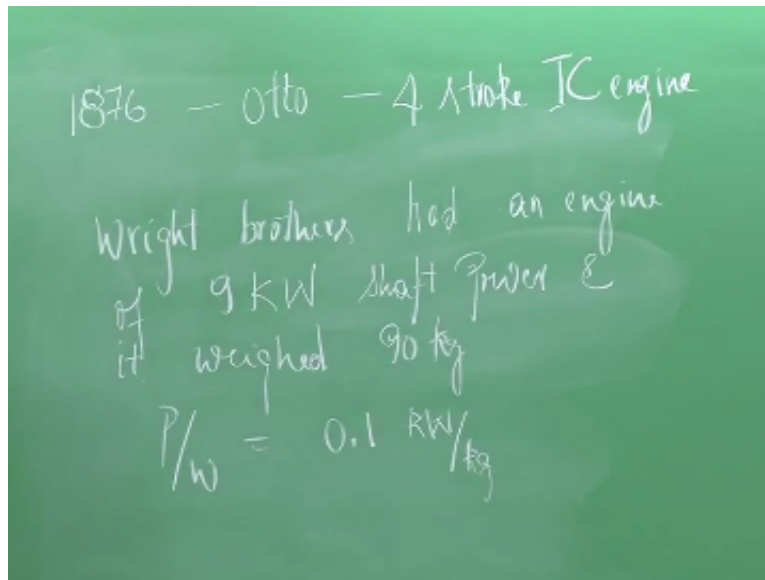 1876 - Otto - 4 stroke IC engine
Wright brothers had an engine
of 9 KW shaft Power &
it weighed 90 kg
P/W = 0.1 KW/kg